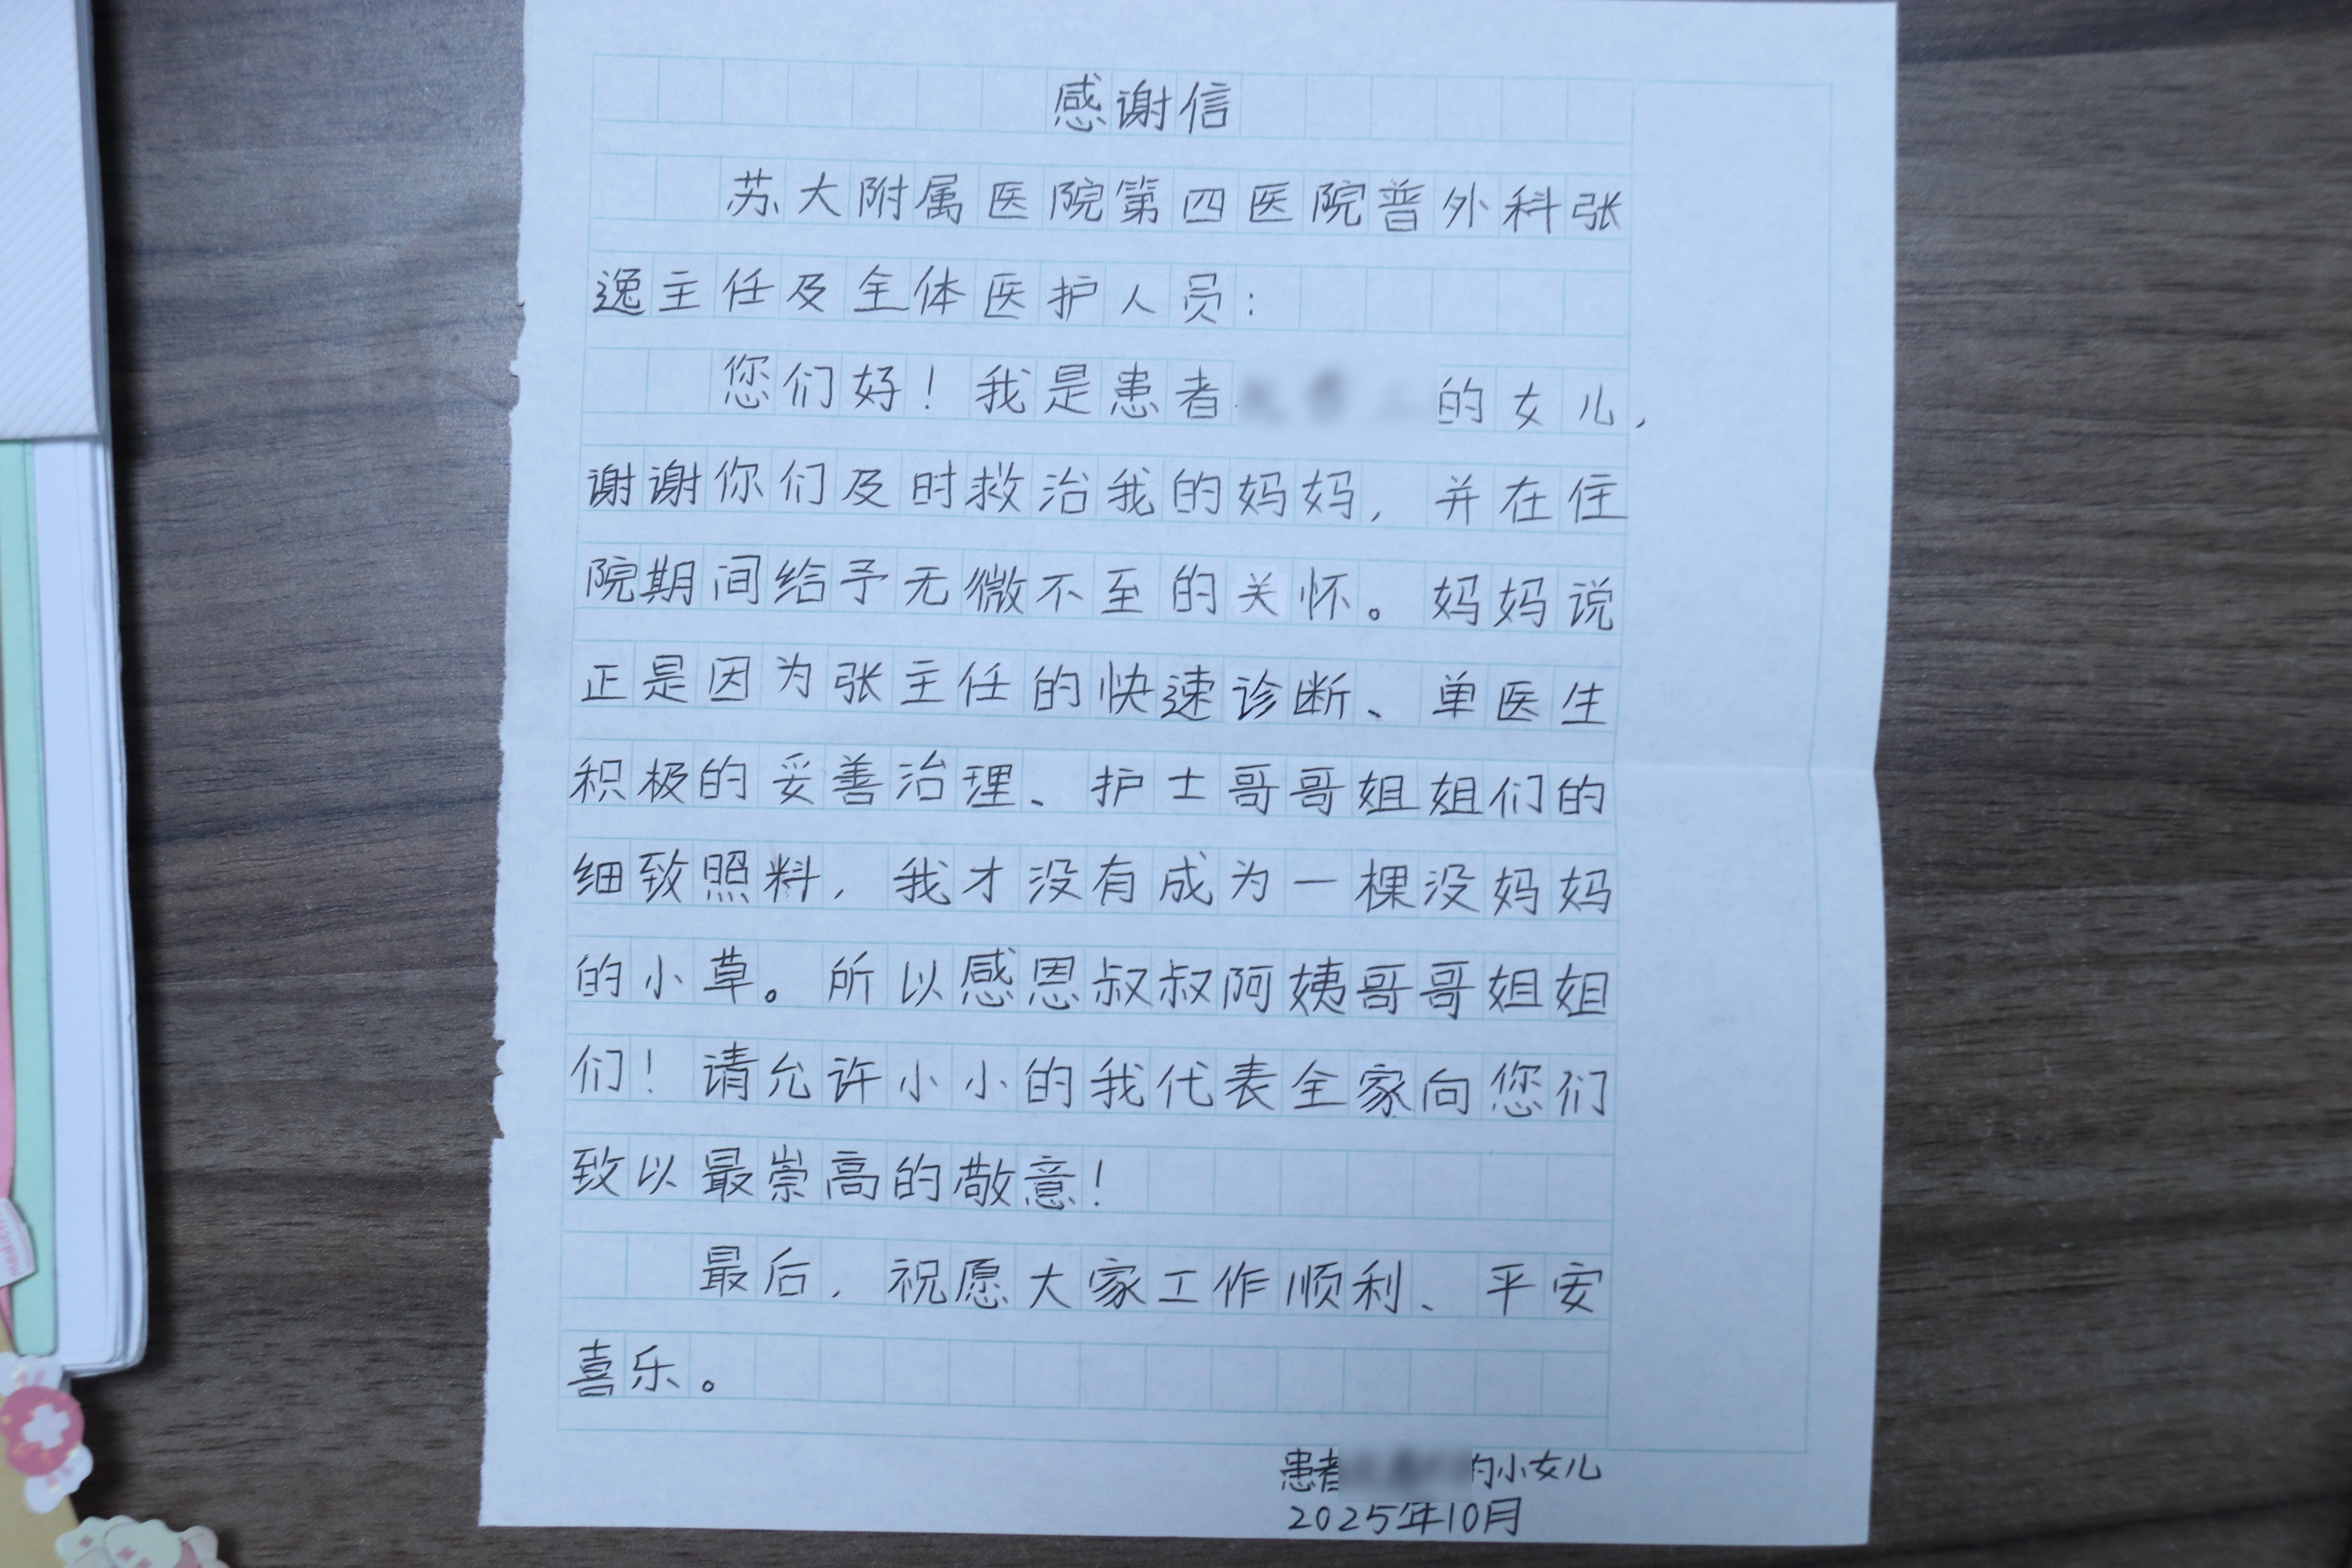 感谢信
苏大附属医院第四医院普外科张
逸主任及全体医护人员：
您们好！我是患者的女儿，
谢谢你们及时救治我的妈妈，并在住
院期间给予无微不至的关怀。妈妈说
正是因为张主任的快速诊断、单医生
积极的妥善治理、护士哥哥姐姐们的
细致照料，我才没有成为一棵没妈妈
的小草。所以感恩叔叔阿姨哥哥姐姐
们！请允许小小的我代表全家向您们
致以最崇高的敬意！
最后，祝愿大家工作顺利、平安
喜乐。
患者的小女儿
2025年10月